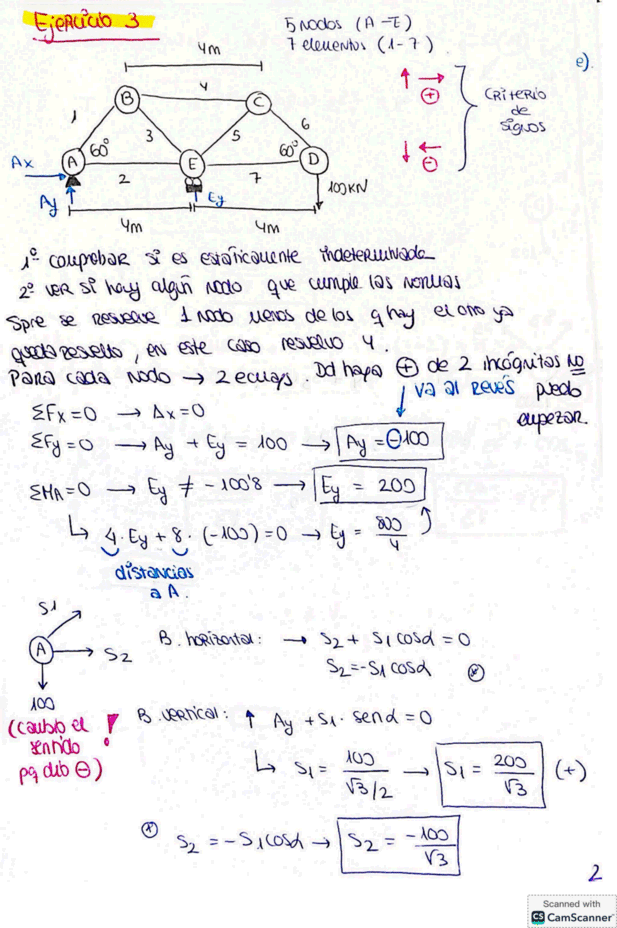 Ejercicio 3
5 nodos (A-E)
7 elementos (1-7)
e).
4m
4
B
C
1
3
5
6
60°
60°
A
E
D
Ax
2
7
Ay
Ey
100KN
4m
4m
+
-
CRITERIO
de
SIGNOS
1º comprobar si es estáticamente indeterminada
2º VER SI hay algún nodo que cumple las normas
Spre se resuelve 1 nodo menos de los q hay el otro ya
queda resuelto, en este caso resuelvo 4.
Para cada nodo → 2 ecuaçs. Dd haya + de 2 incógnitas NO
va al revés
puedo
empezar.
ΣFx=0 → Ax=0
ΣFy=0 → Ay + Ey = 100 → Ay = -100
ΣMA=0 → Ey ≠ -100'8 → Ey = 200
↳ 4·Ey + 8·(-100)=0 → Ey = 800/4
distancias
a A.
S1
A → S2
100
(cambio el
sentido
pq dib ⊖)
!
B. horizontal: → S2 + S1 cosα = 0
S2=-S1 cosα (*)
B. vertical: ↑ Ay + S1· senα = 0
↳ S1 = 100/√3/2 → S1 = 200/√3 (+)
(*) S2 = -S1cosα → S2 = -100/√3
2
Scanned with
CS CamScanner